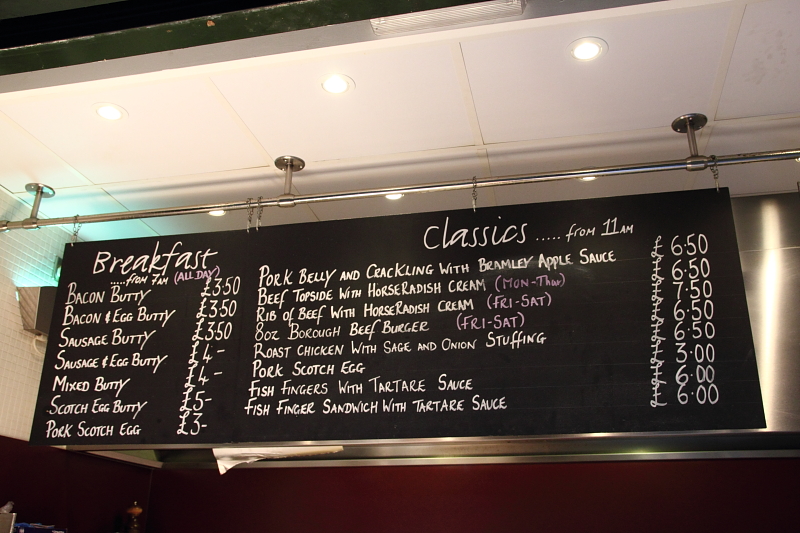 Breakfast
...from 7AM (ALL DAY)
BACON BUTTY £3·50
BACON & EGG BUTTY £3·50
SAUSAGE BUTTY £3·50
SAUSAGE & EGG BUTTY £4-
MIXED BUTTY £4-
SCOTCH EGG BUTTY £5-
PORK SCOTCH EGG £3-
Classics ..... from 11AM
PORK BELLY AND CRACKLING WITH BRAMLEY APPLE SAUCE £6·50
BEEF TOPSIDE WITH HORSERADISH CREAM (MON-Thur) £6·50
RIB OF BEEF WITH HORSERADISH CREAM (FRI-SAT) £7·50
8oz BOROUGH BEEF BURGER (FRI-SAT) £6·50
ROAST CHICKEN WITH SAGE AND ONION STUFFING £6·50
PORK SCOTCH EGG £3·00
FISH FINGERS WITH TARTARE SAUCE £6·00
FISH FINGER SANDWICH WITH TARTARE SAUCE £6·00